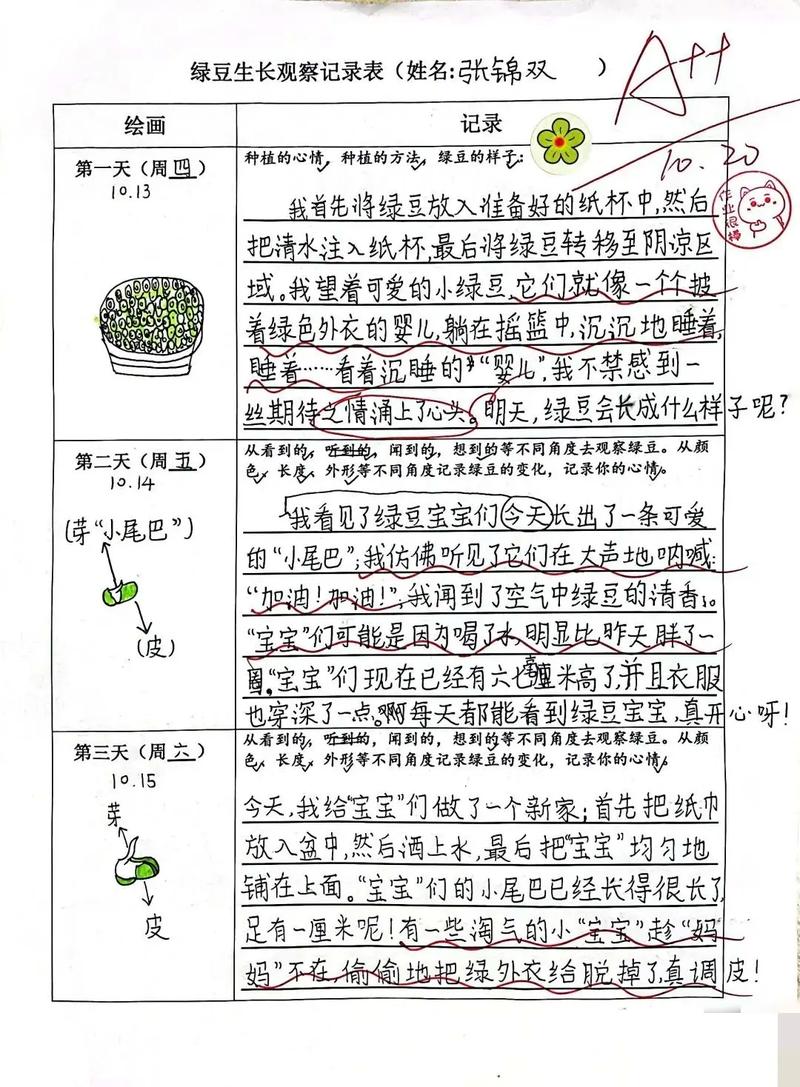 绿豆生长观察记录表（姓名:张锦双）
A++
绘画
记录
10.20
作业很棒
第一天（周四）
10.13
种植的心情，种植的方法，绿豆的样子：
我首先将绿豆放入准备好的纸杯中,然后
把清水注入纸杯,最后将绿豆转移至阴凉区
域。我望着可爱的小绿豆,它们就像一个个披
着绿色外衣的婴儿,躺在摇篮中,沉沉地睡着,
睡着……看着沉睡的“婴儿”,我不禁感到一
丝期待之情涌上了心头。明天,绿豆会长成什么样子呢?
第二天（周五）
10.14
从看到的，听到的，闻到的，想到的等不同角度去观察绿豆。从颜
色、长度、外形等不同角度记录绿豆的变化，记录你的心情。
(芽“小尾巴”)
(皮)
我看见了绿豆宝宝们今天长出了一条可爱
的“小尾巴”,我仿佛听见了它们在大声地呐喊:
“加油!加油!”,我闻到了空气中绿豆的清香。
“宝宝”们可能是因为喝了水,明显比昨天胖了一
圈。“宝宝”们现在已经有六七毫米高了,并且衣服
也穿深了一点。啊每天都能看到绿豆宝宝,真开心呀!
第三天（周六）
10.15
从看到的，听到的，闻到的，想到的等不同角度去观察绿豆。从颜
色、长度、外形等不同角度记录绿豆的变化，记录你的心情。
芽
皮
今天,我给“宝宝”们做了一个新家;首先把纸巾
放入盆中,然后洒上水,最后把“宝宝”均匀地
铺在上面。“宝宝”们的小尾巴已经长得很长了,
足有一厘米呢!有一些淘气的小“宝宝”趁“妈
妈”不在,偷偷地把绿外衣给脱掉了,真调皮!